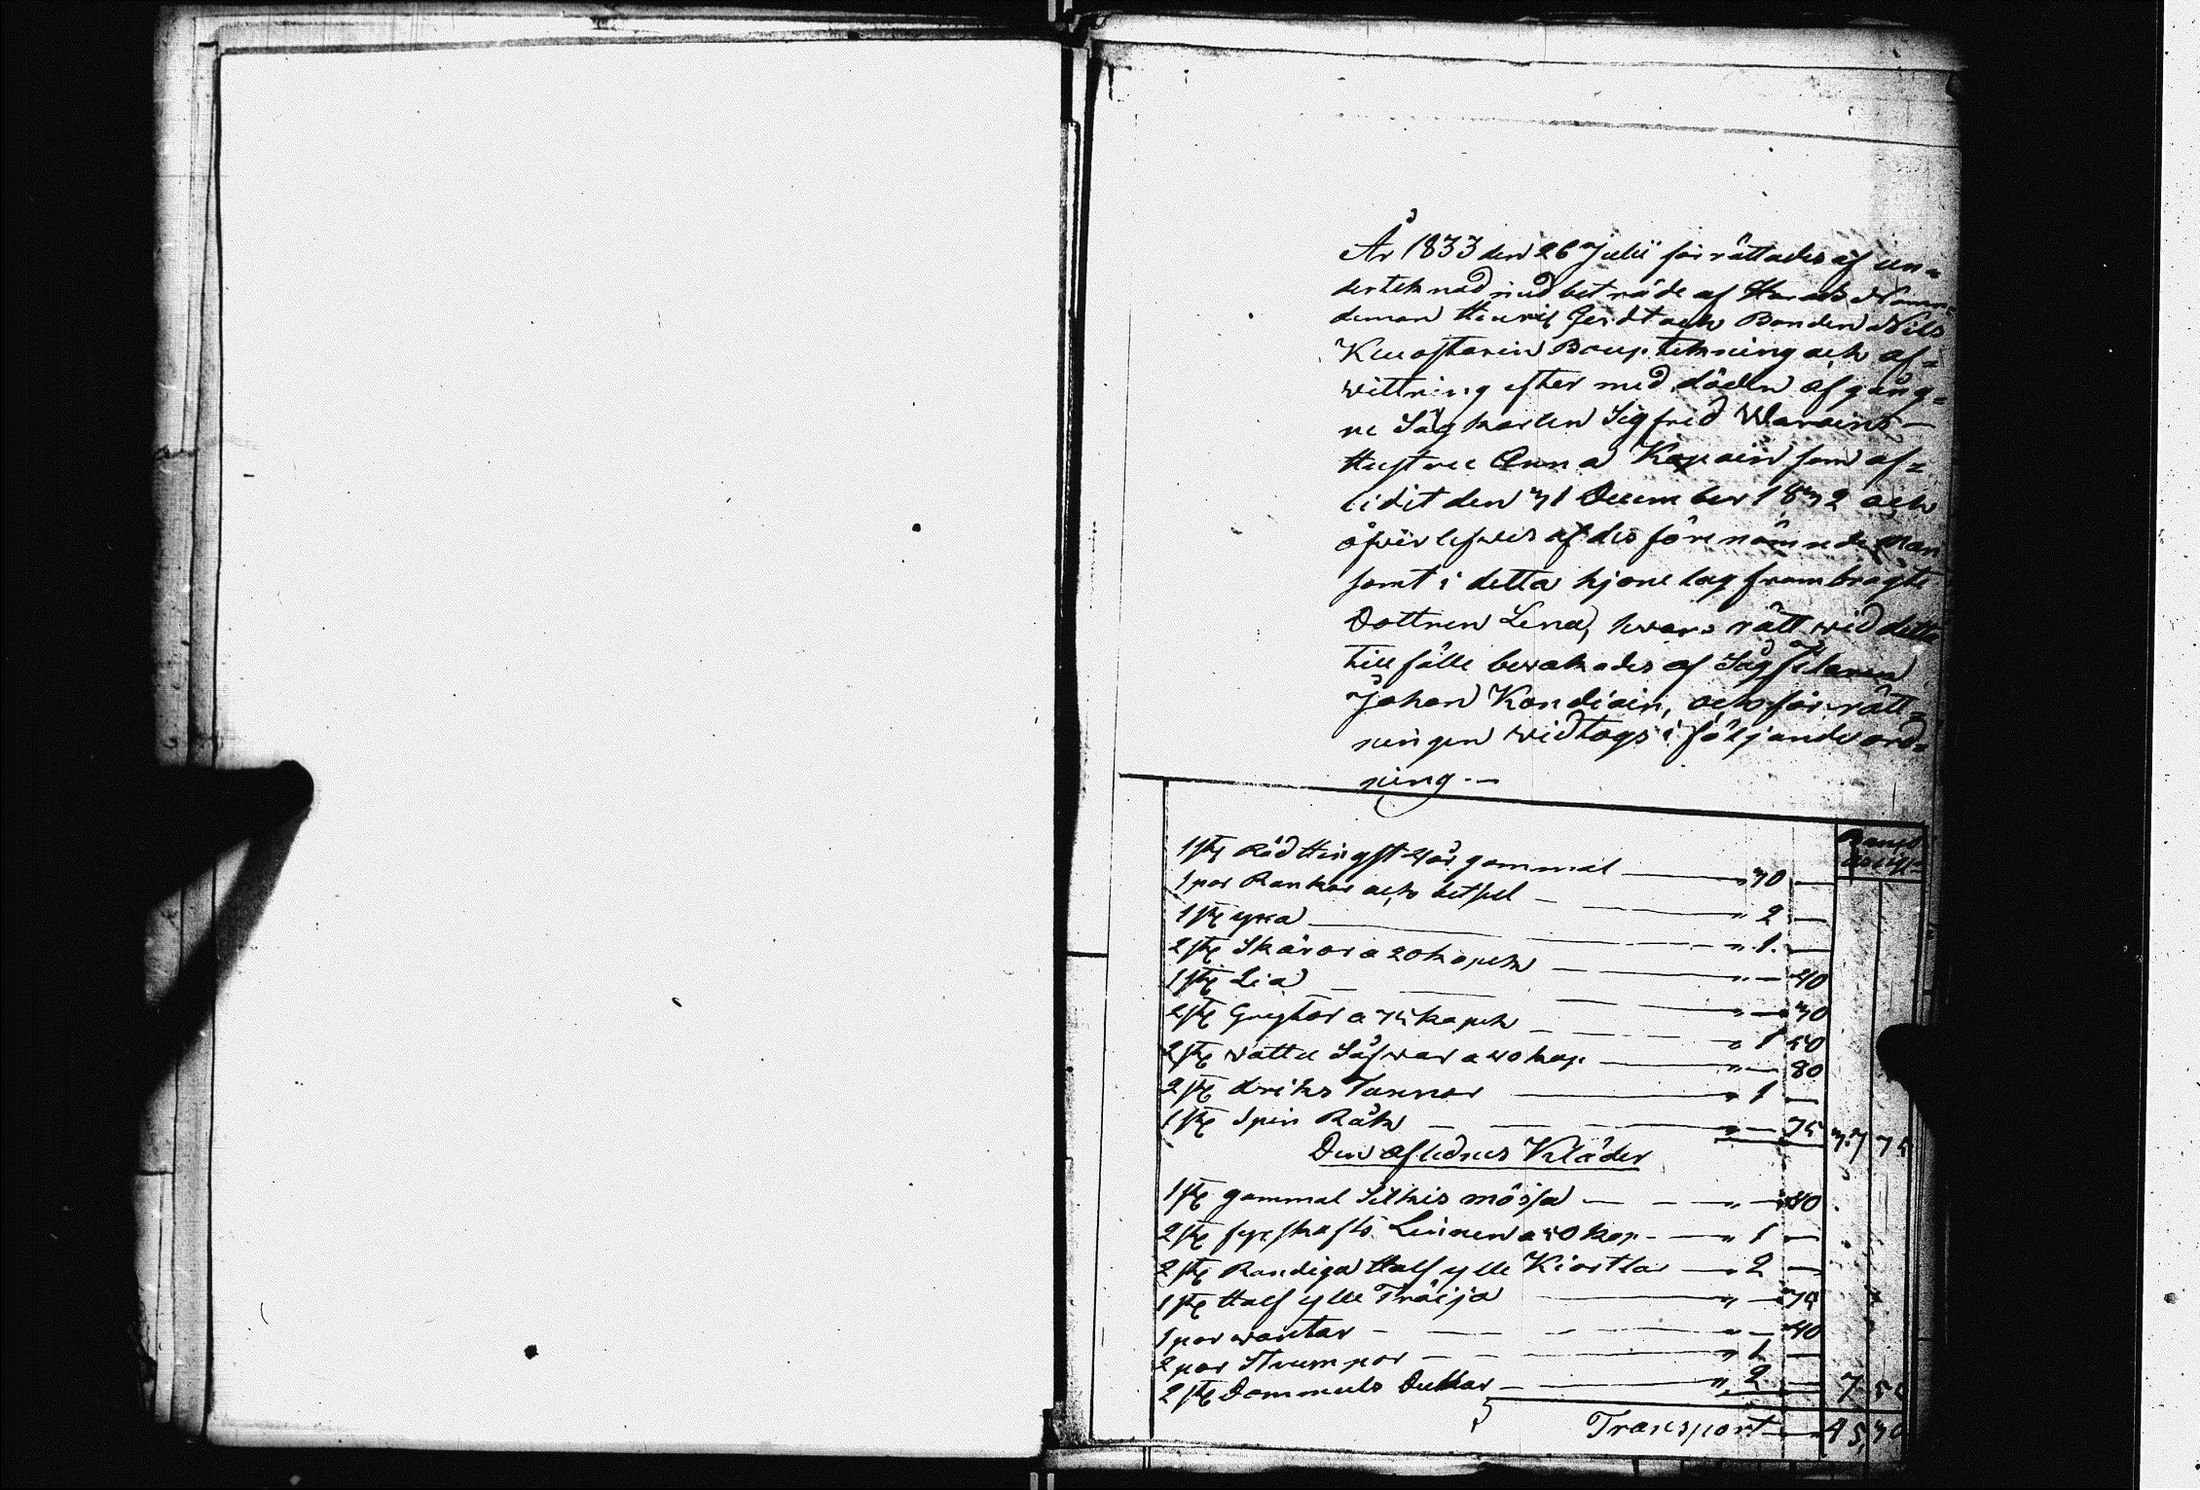 År 1833 den 26 Julii förrättades af un-
derteknad med beträde af Härads Nämn-
deman Henric Gerdt och Bonden Nils
Kuostarin Bouptekning och af-
wittring efter med döden afgång-
ne Sågkarlen Sigfred Warains
Hustru Anna Kapain som af-
lidit den 31 December 1832 och
öfwerlefwes af des förenämnde Man
samt i detta hjonelag frambragte
Dottren Lena, hwars rätt wid detta
tillfälle bewakades af Sågfilaren
Johan Kondiain, och förrätt-
ningen widtogs i följande ord-
ning.—
Banco
1 st Röd Hingst 4 år gammal — 30 —
1 par Rankor och betsel — " 2 —
1 st yxa — " 1 —
2 st Skäror a 20 kopek — " — 40
1 st Lia — " — 30
2 st Grytor a 75 kopek — " 1 50
2 st wattu Såfwar a 40 kop — " — 80
2 st driks Tunnor — " 1 —
1 st Spin Råk — " — 75 37 75
Den aflednes Kläder
1 st gammal Silkis mössa — " — 40
2 st fyrskafts Linnen a 50 kop — " 1 —
2 st Randiga Half ylle Kiortlar — " 2 —
1 st Half ylle Tröija — " — 75
1 par wantar — " — 40
2 par Strumpor — " 1 —
2 st Dommuls Dukar — " 2 — 7 55
Transport — 45,30